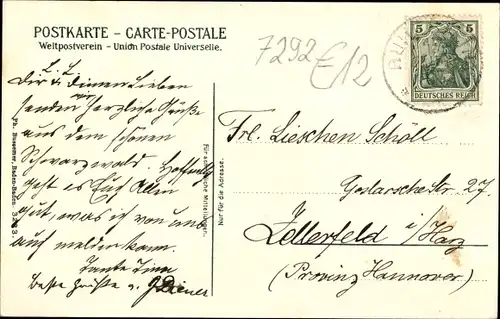 POSTKARTE – CARTE-POSTALE
Weltpostverein – Union Postale Universelle.
7292
E12
5 5
DEUTSCHES REICH
BÜH
L. L.
Dir & Deinen Lieben
senden wir herzliche Grüße
aus dem schönen
Schwarzwald. Hoffentlich
geht es Euch Allen
gut, was ich von uns
auch melden kann.
Tante Tinn
beste Grüße u.
Ph. Bussemer, Baden-Baden
Für schriftliche Mitteilungen.
Nur für die Adresse.
Frl. Lieschen Schöll
Goslarschestr. 27
Zellerfeld i/Harz
(Provinz Hannover)